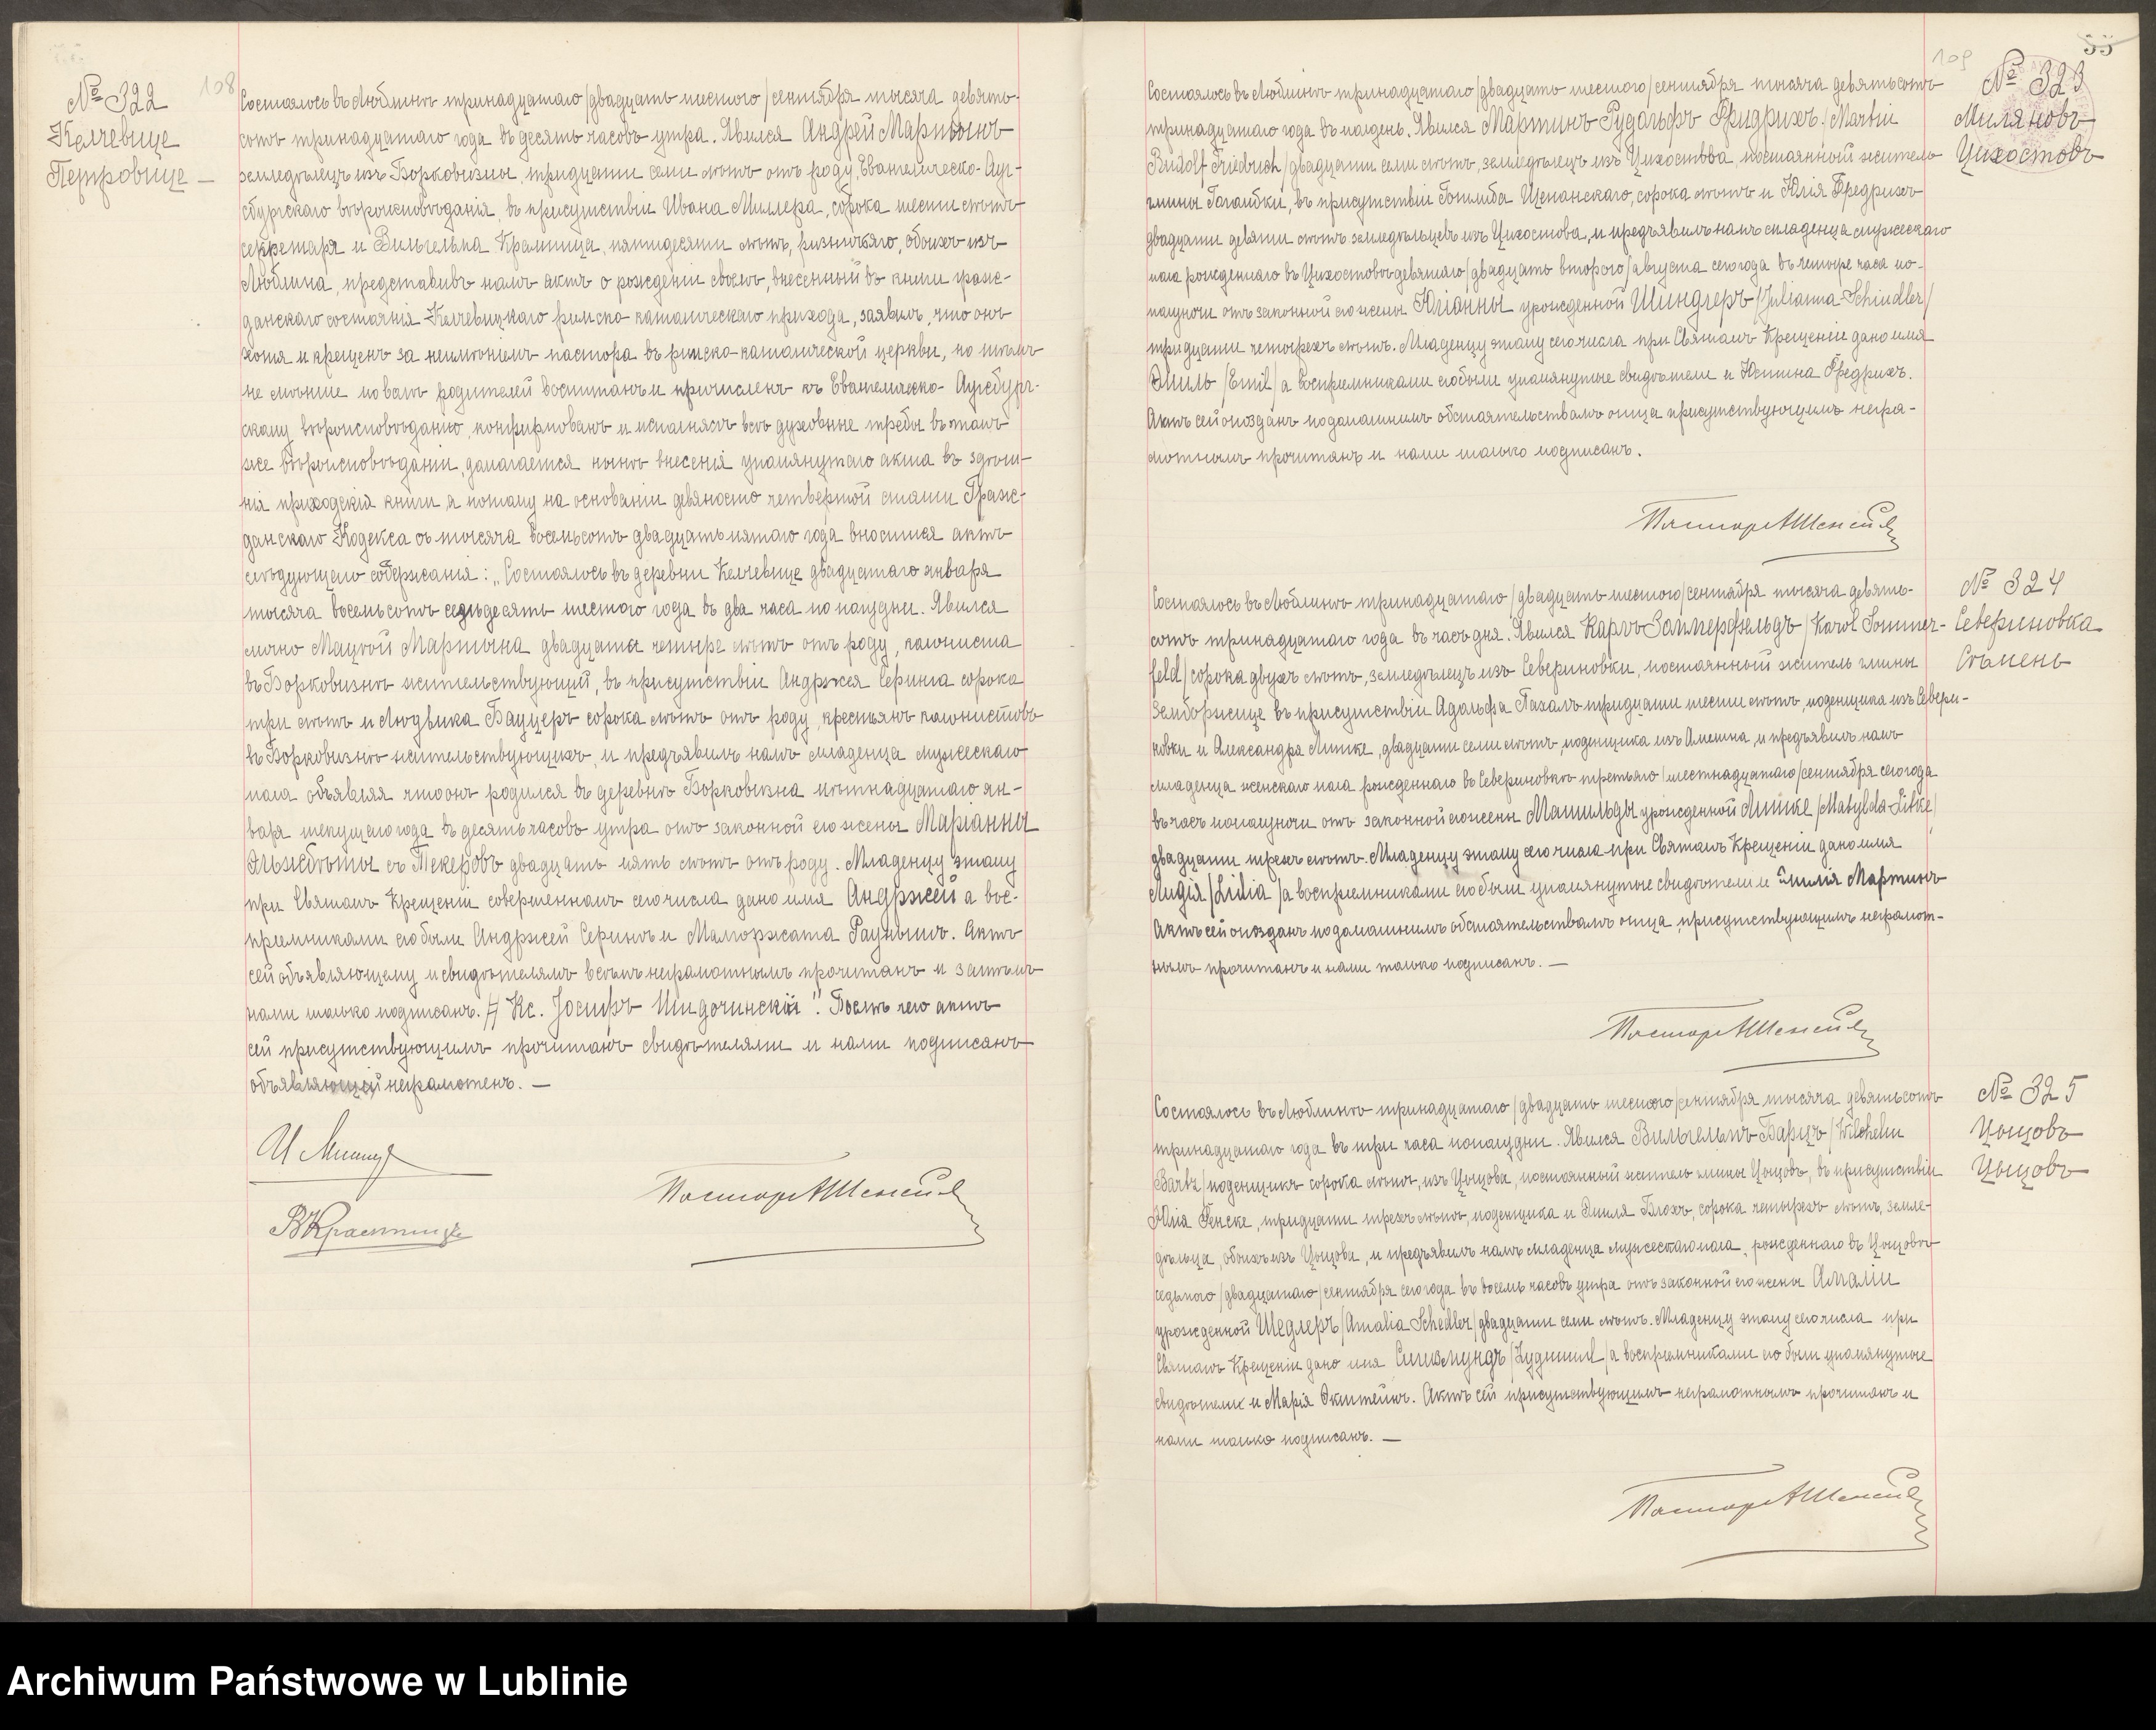 108
№ 322
Келчевице
Петровице —
Состоялось въ Люблинѣ тринадцатаго /двадцать шестого/ сентября тысяча девять-
сотъ тринадцатаго года въ десять часовъ утра. Явился Андрей Мартынъ
земледѣлецъ изъ Борковизны, тридцати семи лѣтъ отъ роду, Евангелическо-Ауг-
сбургскаго вѣроисповѣданія, въ присутствіи Ивана Миллера, сорока шести лѣтъ
секретаря и Вильгельма Крампица, пятидесяти лѣтъ, обоихъ изъ
Люблина, представивъ намъ актъ о рожденіи своемъ, внесенный въ книги граж-
данскаго состоянія Келчевицкаго римско-католическаго прихода, заявилъ, что онъ
хотя и крещенъ за неимѣніемъ пастора въ римско-католической церкви, но тѣмъ
не менѣе по волѣ родителей воспитанъ и причисленъ къ Евангелическо-Аугсбург-
скому вѣроисповѣданію, конфирмованъ и исполнялъ всѣ духовные требы въ томъ
же вѣроисповѣданіи, домогается нынѣ внесенія упомянутаго акта въ здѣш-
нія приходскія книги, а потому на основаніи девяносто четвертой статьи Граж-
данскаго Кодекса съ тысяча восемьсотъ двадцать пятаго года вносится актъ
слѣдующаго содержанія: „Состоялось въ деревни Келчевице двадцатаго января
тысяча восемьсотъ семьдесять шестого года въ два часа по полудни. Явился
лично Мацѣй Мартына двадцати четыре лѣтъ отъ роду, колониста
въ Борковизнѣ жительствующий, въ присутствіи Андржея Серинга сорока
три лѣтъ и Людвика Бауцеръ сорока лѣтъ отъ роду, крестьянъ колонистовъ
въ Борковизнѣ жительствующихъ, и предъявилъ намъ младенца мужескаго
пола объявляя что онъ родился въ деревнѣ Борковизна пятнадцатаго ян-
варя текущаго года въ десять часовъ утра отъ законной его жены Маріанны
Эльжбѣты съ Пекеровъ двадцать пять лѣтъ отъ роду. Младенцу этому
при Святомъ Крещеніи совершенномъ сего числа дано имя Андржей а вос-
приемниками его были Андржей Серингъ и Малгоржата Актъ
сей объявляющему и свидѣтелямъ всѣмъ неграмотнымъ прочитанъ и затѣмъ
нами только подписанъ. Кс. Іосифъ Шидочинскій". Послѣ чего актъ
сей присутствующимъ прочитанъ свидѣтелями и нами подписанъ
объявляющий неграмотенъ. —
И Миллер
В Крампицъ
Пасторъ А Шенейх
55
109
№ 323
Миляновъ
Цихостовъ
Состоялось въ Люблинѣ тринадцатаго /двадцать шестого/ сентября тысяча девятьсотъ
тринадцатаго года въ полдень. Явился Мартинъ-Рудольфъ Фридрихъ /Martin
Rudolf Friedrich/ двадцати семи лѣтъ, земледѣлецъ изъ Цихостова постоянный житель
гмины Голомбки, въ присутствіи Готлиба Щепанскаго, сорока лѣтъ и Юлія Фредрихъ
двадцати девяти лѣтъ земледѣльцевъ изъ Цихостова, и предъявилъ намъ младенца мужескаго
пола рожденнаго въ Цихостовѣ девятаго /двадцать второго/ августа сего года въ четыре часа по-
полуночи отъ законной его жены Юліанны урожденной Шиндлеръ /Julianna Schindler/
тридцати четырехъ лѣтъ. Младенцу этому сего числа при Святомъ Крещеніи дано имя
Эмиль /Emil/ а восприемниками его были упомянутые свидѣтели и Юстина Фредрихъ.
Актъ сей опозданъ по домашнимъ обстоятельствамъ отца присутствующимъ негра-
мотнымъ прочитанъ и нами только подписанъ.
Пасторъ А Шенейх
№ 324
Севериновка
Сѣмень
Состоялось въ Люблинѣ тринадцатаго /двадцать шестого/ сентября тысяча девять-
сотъ тринадцатаго года въ часъ дня. Явился Карлъ Зоммерфельдъ /Karol Sommer-
feld/ сорока двухъ лѣтъ, земледѣлецъ изъ Севериновки, постоянный житель гмины
Земборжице въ присутствіи Адольфа Пахалъ тридцати шести лѣтъ, поденщика изъ Севери-
новки и Александра Литке, двадцати семи лѣтъ, поденщика изъ и предъявилъ намъ
младенца женскаго пола рожденнаго въ Севериновкѣ третьяго /шестнадцатаго/ сентября сего года
въ часъ пополуночи отъ законной его жены Матильды урожденной Литке /Matylda Litke/
двадцати трехъ лѣтъ. Младенцу этому сего числа при Святомъ Крещеніи дано имя
Лидія /Lidia/ а восприемниками его были упомянутые свидѣтели и Эмилія Мартинъ
Актъ сей опозданъ по домашнимъ обстоятельствамъ отца, присутствующимъ неграмот-
нымъ прочитанъ и нами только подписанъ. —
Пасторъ А Шенейх
№ 325
Цыцовъ
Цыцовъ
Состоялось въ Люблинѣ тринадцатаго /двадцать шестого/ сентября тысяча девятьсотъ
тринадцатаго года въ три часа пополудни. Явился Вильгельмъ Барцъ /Wilhelm
Bartz/ поденщикъ сорока лѣтъ, изъ Цыцова, постоянный житель гмины Цыцовъ, въ присутствіи
Юлія Генске, тридцати трехъ лѣтъ, поденщика и Эмиля Блохъ, сорока четырехъ лѣтъ, земле-
дѣльца, обоихъ изъ Цыцова, и предъявилъ намъ младенца мужескаго пола, рожденнаго въ Цыцовѣ
седьмого /двадцатаго/ сентября сего года въ восемь часовъ утра отъ законной его жены Амаліи
урожденной Шедлеръ /Amalia Schedler/ двадцати семи лѣтъ. Младенцу этому сего числа при
Святомъ Крещеніи дано имя Сигизмундъ /Zygmunt/ а восприемниками его были упомянутые
свидѣтели и Марія Экштейнъ. Актъ сей присутствующимъ неграмотнымъ прочитанъ и
нами только подписанъ. —
Пасторъ А Шенейх
Archiwum Państwowe w Lublinie